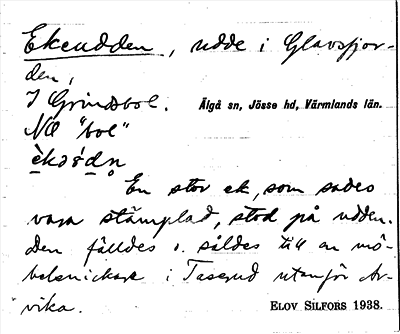 Ekeudden, udde i Glavsfjor-
den,
I Grindsbol. Älgå sn, Jösse hd, Värmlands län.
NO "bol"
En stor ek, som sades
vara stämplad, stod på udden.
Den fälldes o. såldes till en mö-
belsnickare i Taserud utanför Ar-
vika. ELOV SILFORS 1938.